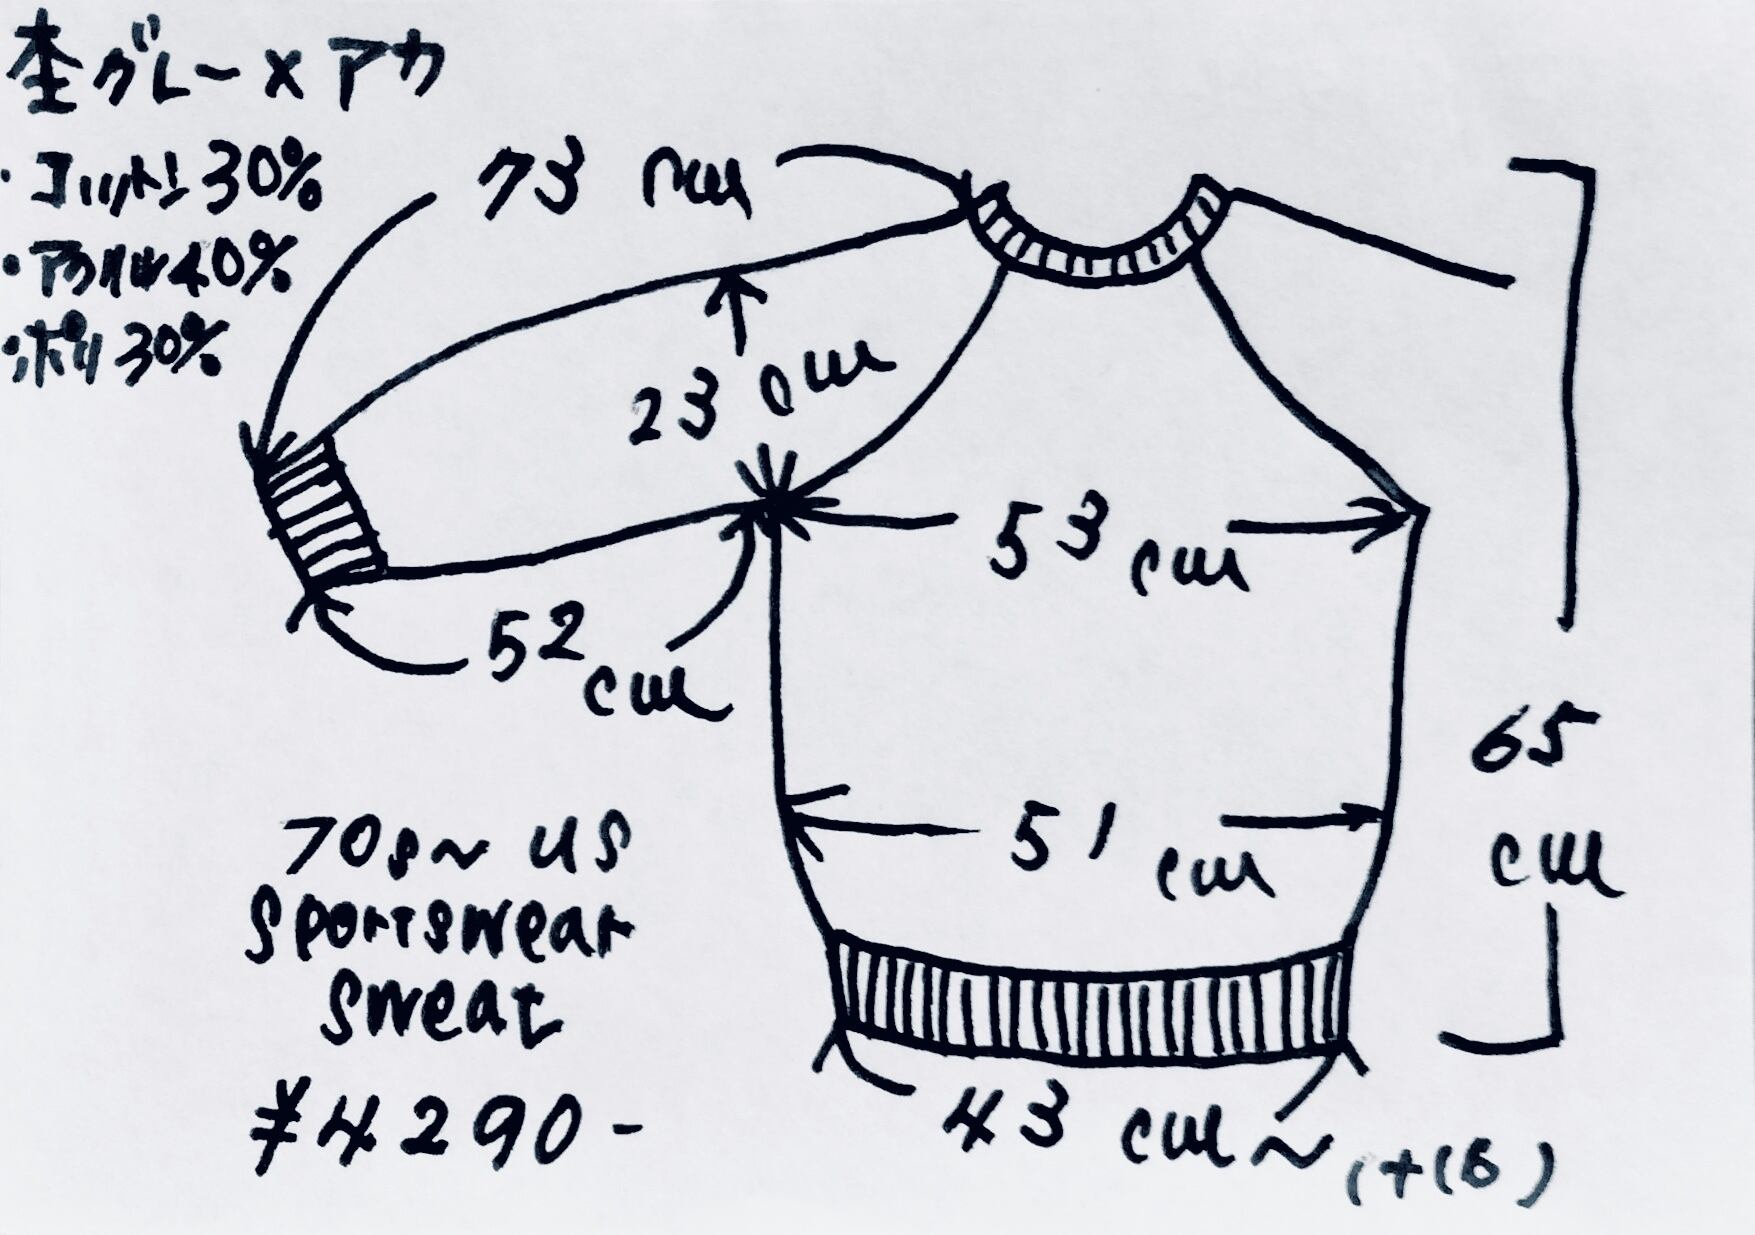 杢グレー×アカ
・コットン30%
・アクリル40%
・ポリ30%
73cm
23cm
53cm
52cm
51cm
65cm
43cm~(+16)
70s~US
Sportswear
Sweat
¥4290-